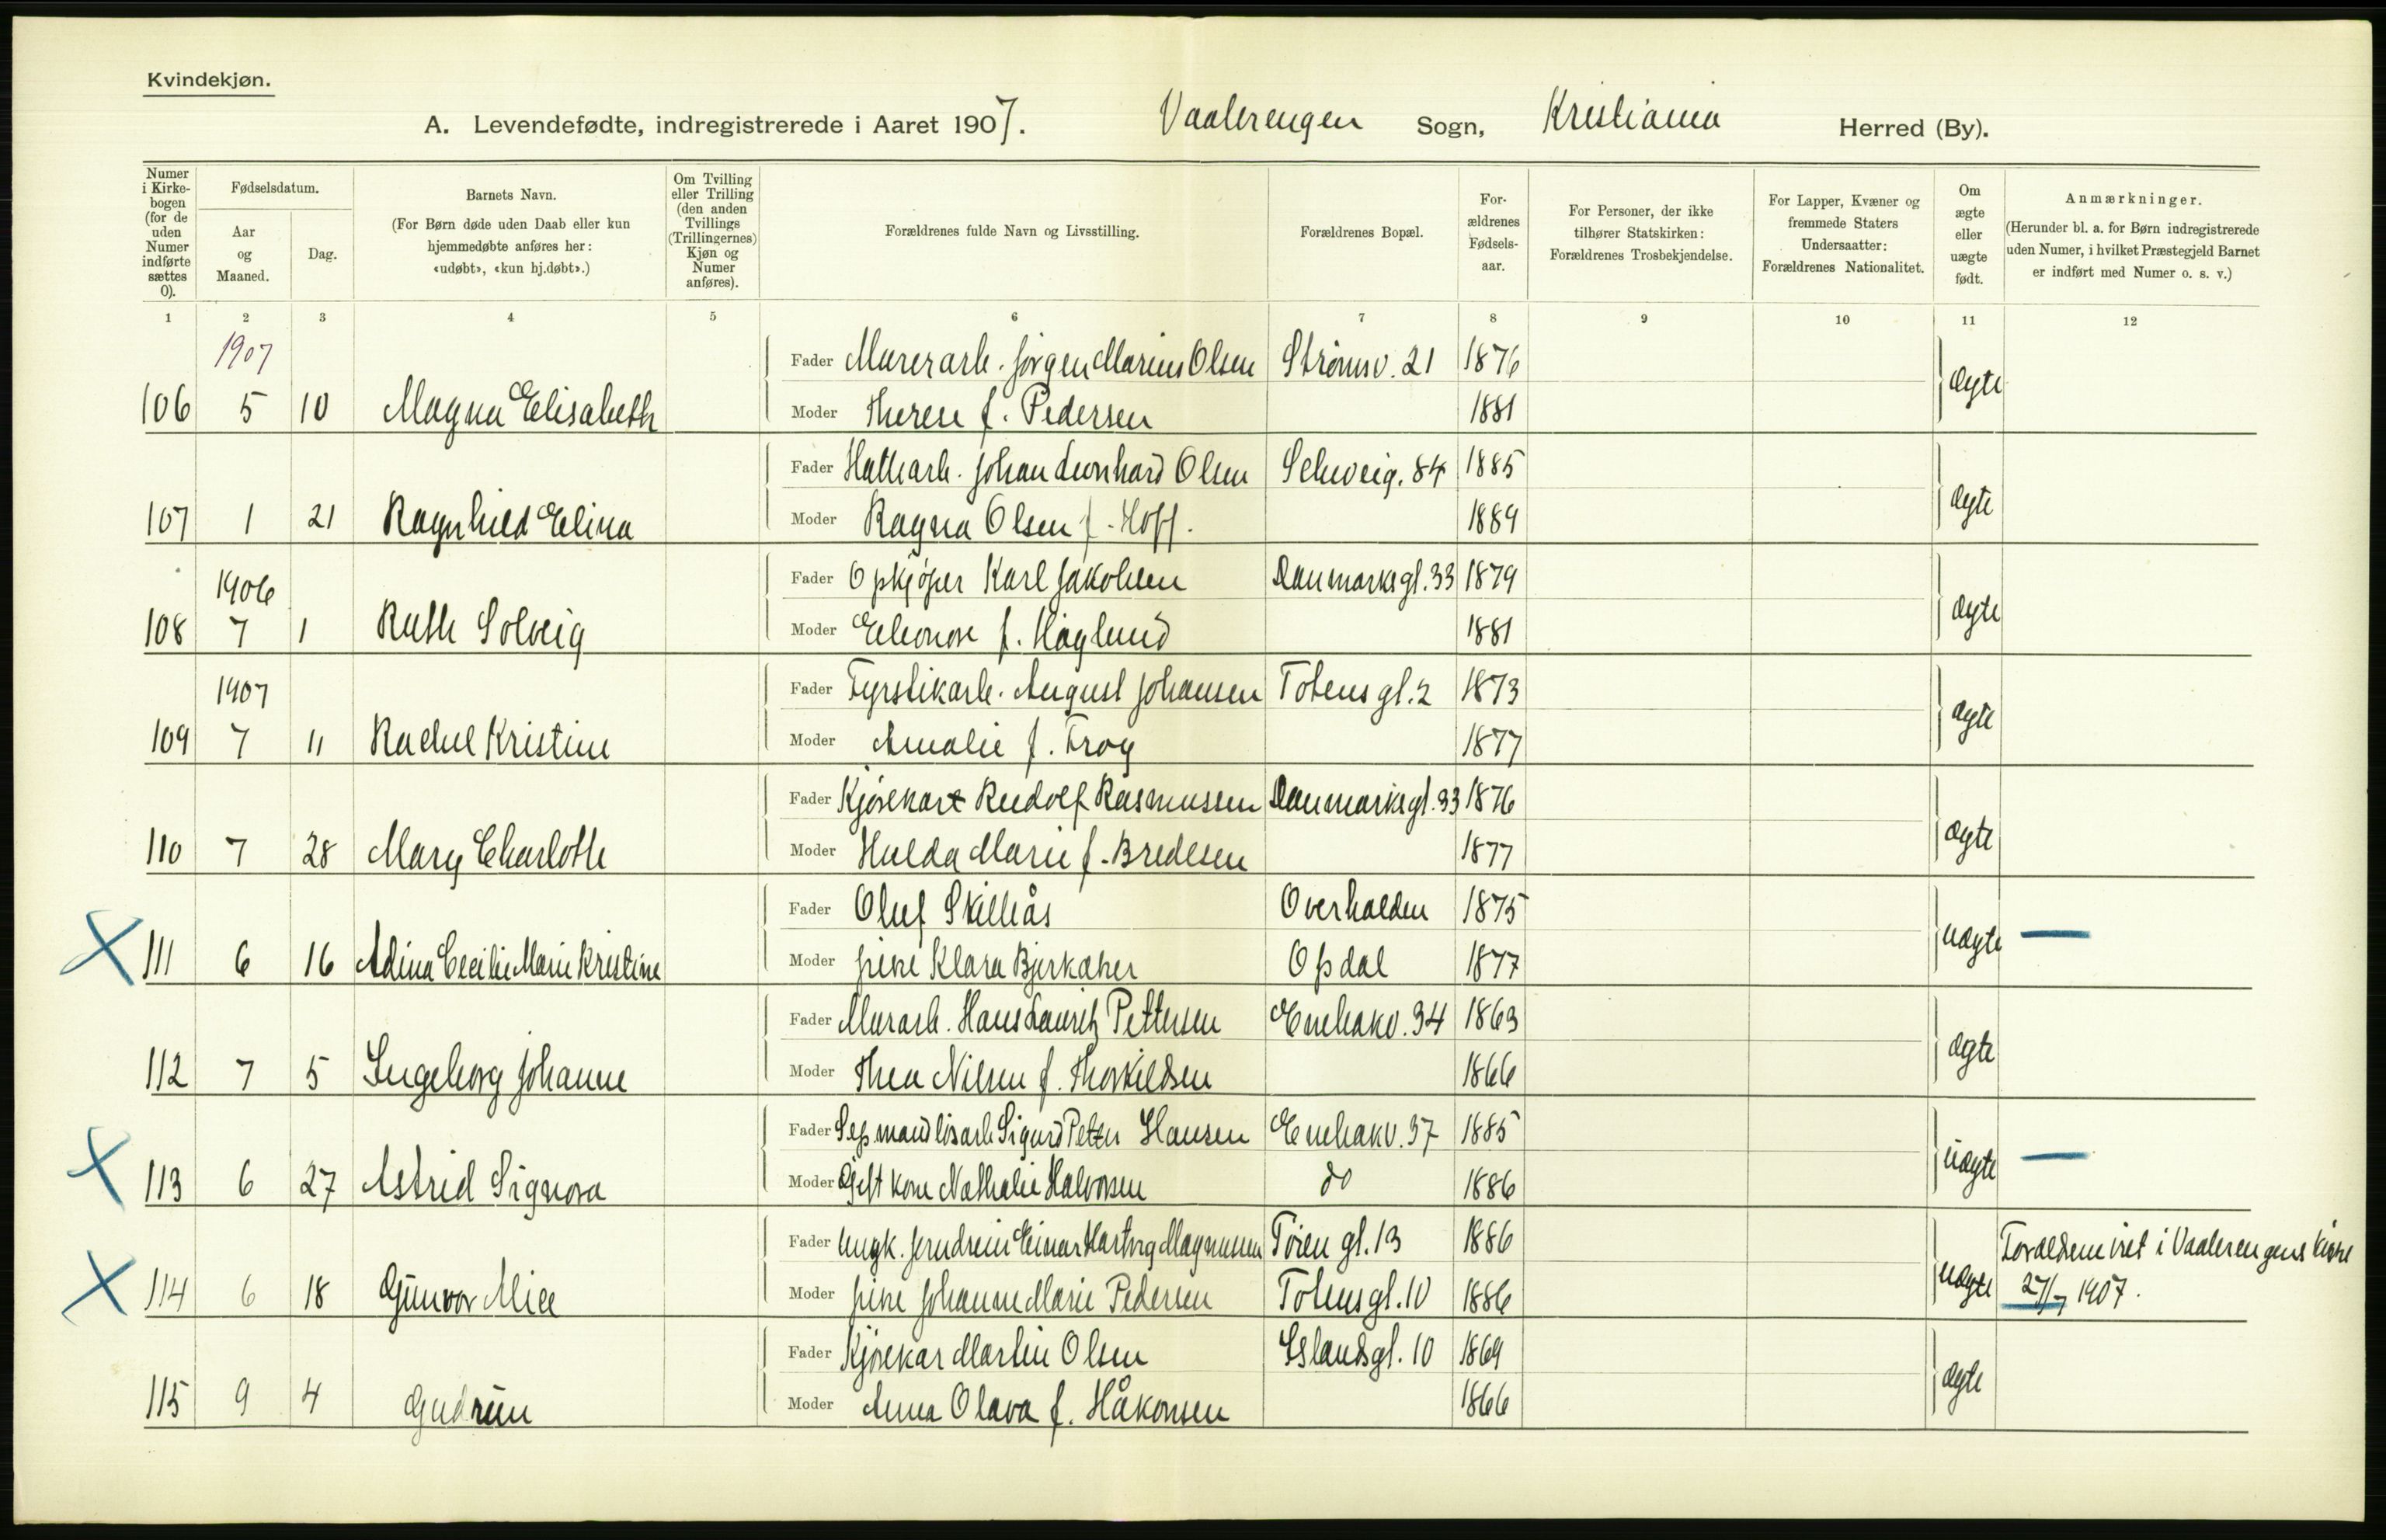 Kvindekjøn.
A. Levendefødte, indregistrerede i Aaret 1907. Vaalerengen Sogn, Kristiania Herred (By).
Numer i Kirkebogen (for de uden Numer indførte sættes 0).
Fødselsdatum.
Aar og Maaned.
Dag.
Barnets Navn.
(For Børn døde uden Daab eller kun hjemmedøbte anføres her: «udøbt», «kun hj.døbt».)
Om Tvilling eller Trilling (den anden Tvillings (Trillingernes) Kjøn og Numer anføres).
Forældrenes fulde Navn og Livsstilling.
Forældrenes Bopæl.
Forældrenes Fødselsaar.
For Personer, der ikke tilhører Statskirken: Forældrenes Trosbekjendelse.
For Lapper, Kvæner og fremmede Staters Undersaatter: Forældrenes Nationalitet.
Om ægte eller uægte født.
Anmærkninger.
(Herunder bl. a. for Børn indregistrerede uden Numer, i hvilket Præstegjeld Barnet er indført med Numer o. s. v.)
1 2 3 4 5 6 7 8 9 10 11 12
1907
Fader Murerarb. Jørgen Marius Olsen Strømsv. 21 1876
106 5 10 Magna Elisabeth Moder Therese f. Pedersen 1881 ægte
Fader Johan Leonhard Olsen Schweig. 84 1885
107 1 21 Ragnhild Elina Moder Ragna Olsen f. Hoff. 1889 ægte
1906
Fader Opkjøper Karl Jakobsen Danmarksgt. 33 1879
108 7 1 Ruth Solveig Moder Eleonore f. Haglund 1881 ægte
1907
Fader Fyrstikarb. August Johansen Totensgt. 2 1873
109 7 11 Rachel Kristine Moder Amalie f. Frog 1877 ægte
Fader Kjørekar Rudolf Rasmussen Danmarksgt. 33 1876
110 7 28 Mary Charlotte Moder Hulda Marie f. Bredesen 1877 ægte
Fader Oluf Skillås Overhalden 1875
111 6 16 Adina Cecilie Marie Kristine Moder pike Klara Bjerkaker Opdal 1877 uægte —
Fader Murarb. Hans Lauritz Pettersen Enebakv. 34 1863
112 7 5 Ingeborg Johanne Moder Thea Nilsen f. Thorkildsen 1866 ægte
Fader Sep. mand løsarb Sigurd Petter Hansen Enebakv. 37 1885
113 6 27 Astrid Signora Moder Gift kone Nathalie Halvorsen do 1886 uægte —
Fader Ungk. Einar Hartvig Magnussen Tøien gt. 13 1886
114 6 18 Gunvor Alice Moder pike Johanne Marie Pedersen Totensgt. 10 1886 uægte Forældrene viet i Vaalerengens kirke
27/7 1907.
Fader Kjørekar Martin Olsen Islandsgt. 10 1869
115 9 4 Gudrun Moder Anna Olava f. Håkonsen 1866 ægte